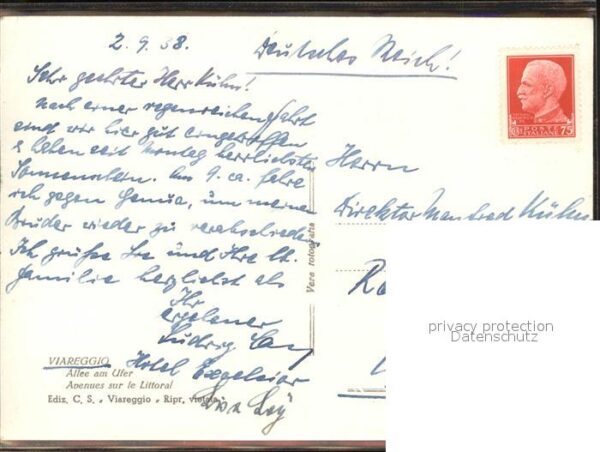 2.9.38.
Deutsches Reich!
Sehr geehrter Herr Kühn!
Nach einer regenreichen Fahrt
sind wir hier gut eingetroffen
& haben seit Montag herrlichsten
Sonnenschein. Am 9. ca. fahre
ich gegen Genua, um meinen
Bruder wieder zu verabschieden
Ich grüße Sie und Ihre lb.
Familie herzlichst als
Ihr
ergebener
Ludwig
Hotel Excelsior
Herrn
Direktor Manfred Kühn
POSTE
ITALIANE
75
Vera fotografia
VIAREGGIO
Allee am Ufer
Avenues sur le Littoral
Ediz. C. S. - Viareggio - Ripr. vietata
privacy protection
Datenschutz